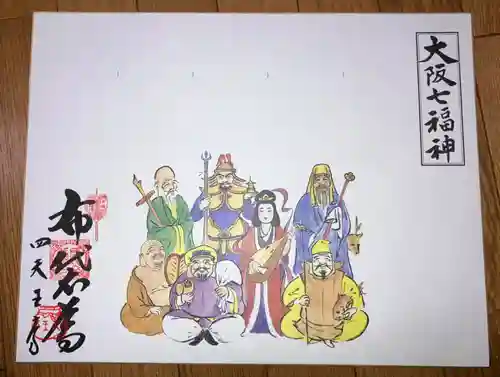 大阪七福神
布袋尊
四天王寺